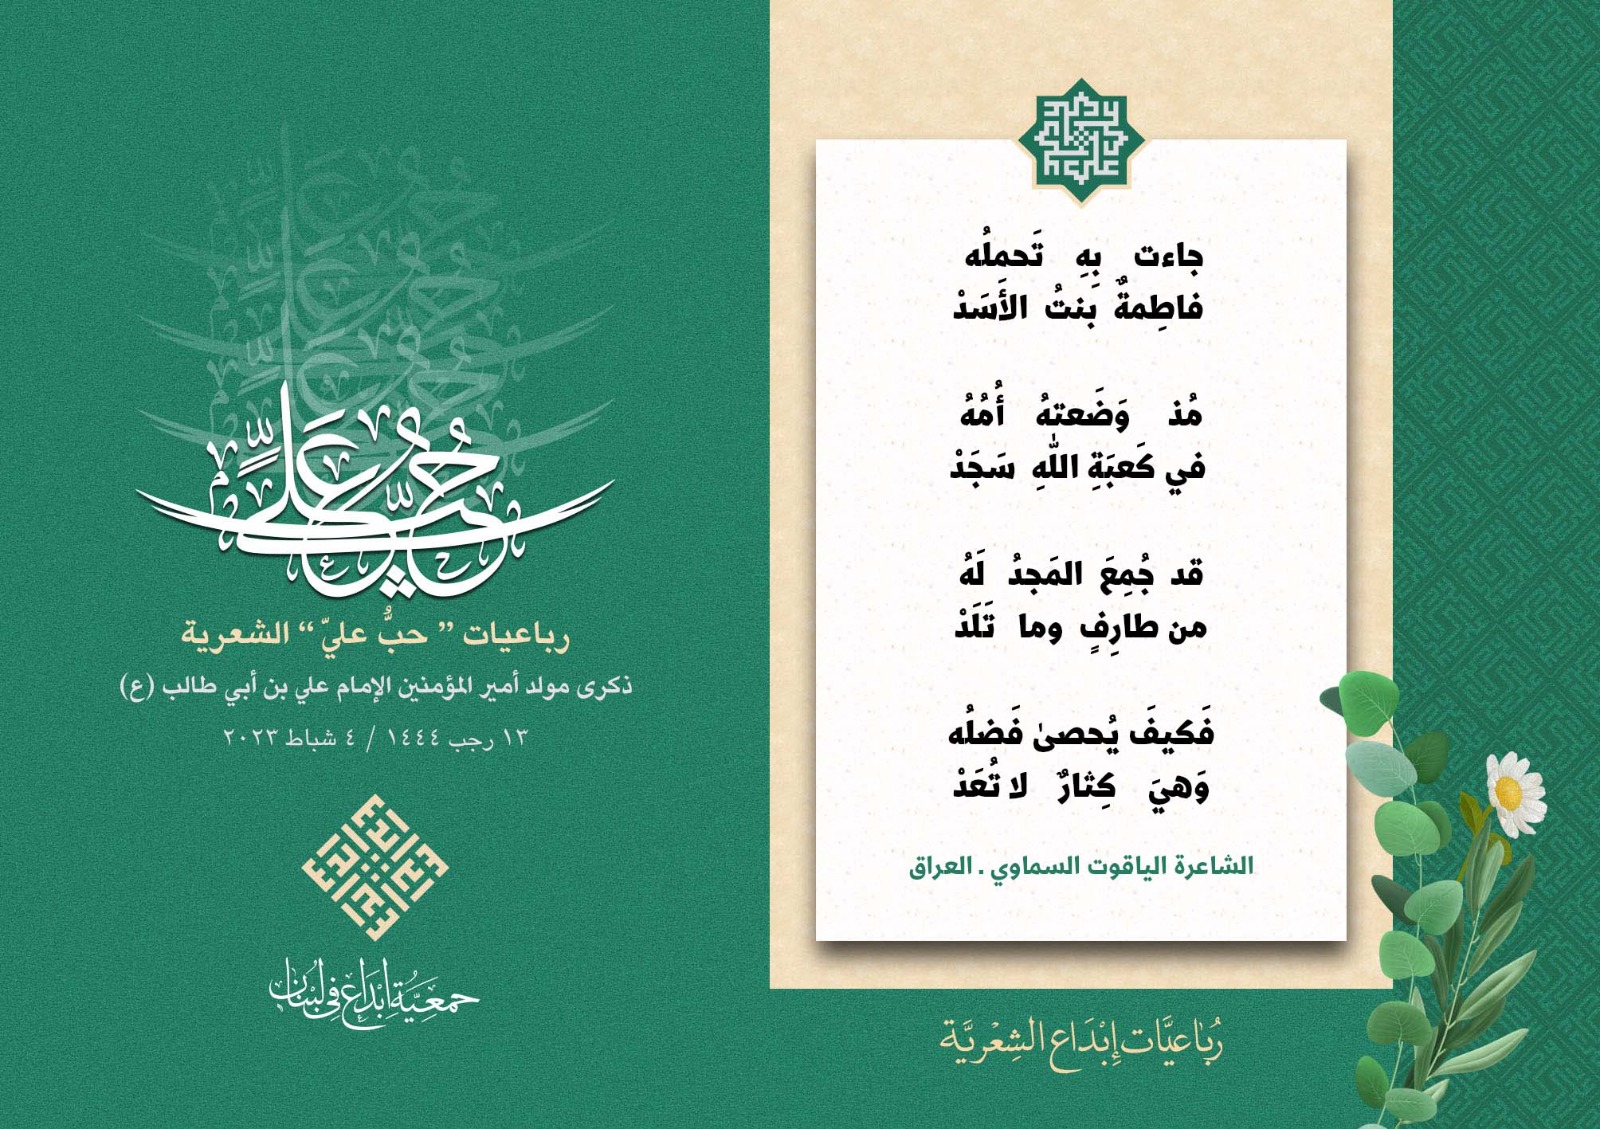 جاءت بِهِ تَحملُه
فاطِمةٌ بَنتُ الأَسَدْ
مُذ وَضَعتهُ أُمُهُ
في كَعبَةِ اللهِ سَجَدْ
قد جُمِعَ المَجدُ لَهُ
من طارِفٍ وما تَلَدْ
فَكيفَ يُحصىٰ فَضلُه
وَهيَ كِثارٌ لا تُعَدْ
الشاعرة الياقوت السماوي . العراق
رُبَاعيَّات إِبْدَاع الشِعْريَّة
حُبُّ عَليٍّ
رباعيات ” حبُّ عليّ “ الشعرية
ذكرى مولد أمير المؤمنين الإمام علي بن أبي طالب (ع)
١٣ رجب ١٤٤٤ / ٤ شباط ٢٠٢٣
جمعيَّة إبْدَاع في لبْنَان